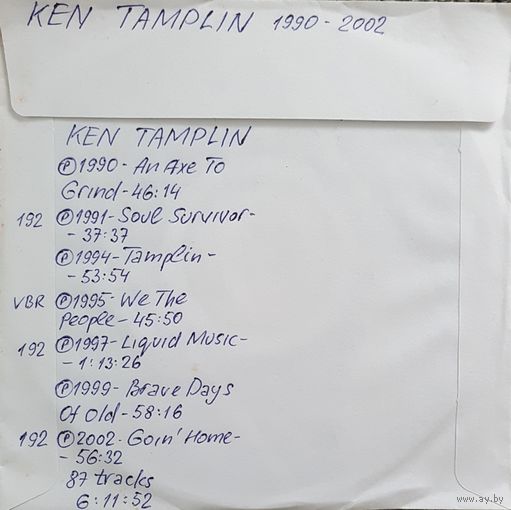 KEN TAMPLIN 1990 - 2002
KEN TAMPLIN
Ⓟ1990- An Axe To
Grind - 46:14
192 Ⓟ1991- Soul Survivor -
- 37:37
Ⓟ1994- Tamplin -
- 53:54
VBR Ⓟ1995- We The
People - 45:50
192 Ⓟ1997- Liquid Music -
- 1:13:26
Ⓟ1999- Brave Days
Of Old - 58:16
192 Ⓟ2002- Goin' Home -
- 56:32
87 tracks
6:11:52
www.ay.by